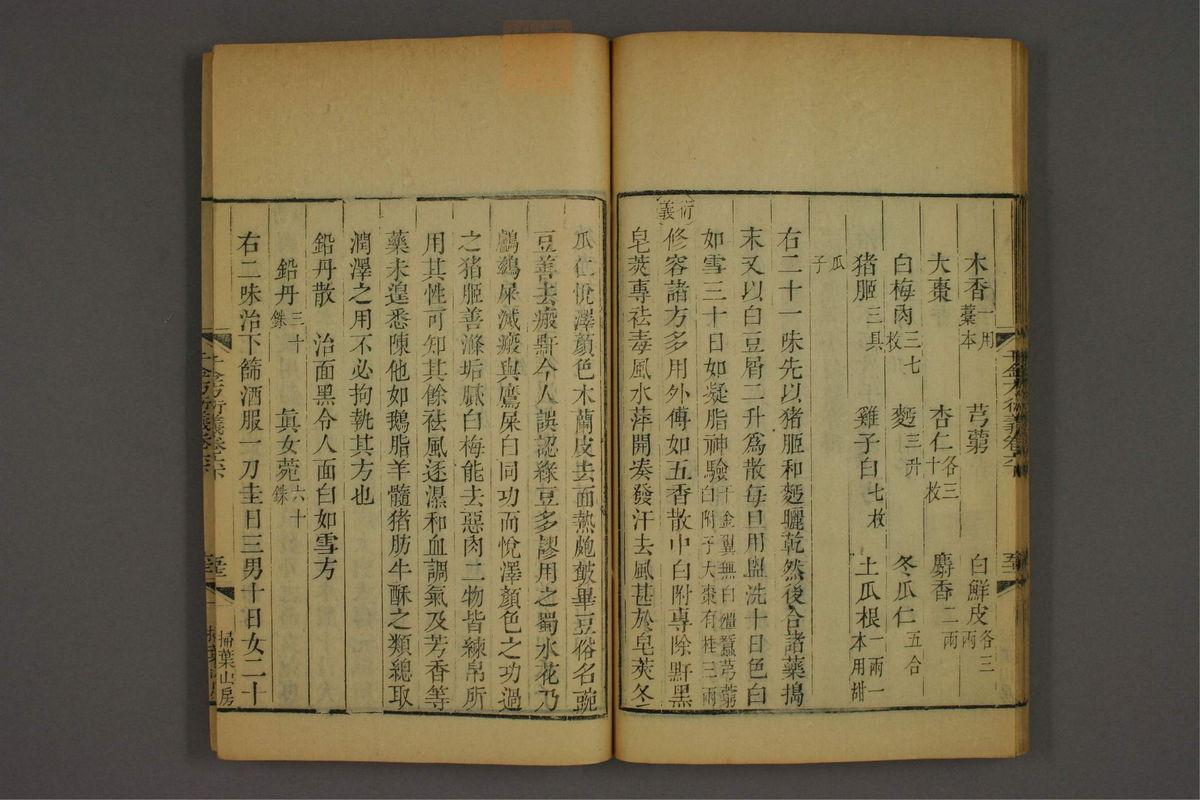 木香一用藁本 芎藭 白鮮皮各三兩
大棗 杏仁各三十枚 麝香二兩
白梅肉三七枚 麪三升 冬瓜仁五合
猪胆三具 雞子白七枚 土瓜根一兩一本用甜
瓜子
右二十一味先以猪胆和麪曬乾然後合諸藥搗
末又以白豆屑二升爲散每旦用盥洗十日色白
如雪三十日如凝脂神驗千金翼無白殭蠶芎藭白附子大棗有桂三兩
衍義
修容諸方多用外傅如五香散中白附專除䵟黑
皂莢專祛毒風水萍開凑發汗去風甚於皂莢冬
瓜仁悅澤顏色木蘭皮去面熱皰皶畢豆俗名豌
豆善去瘢䵟今人誤認綠豆多謬用之蜀水花乃
鸕鷀屎滅瘢與鷹屎白同功而悅澤顏色之功過
之猪胆善滌垢膩白梅能去惡肉二物皆練帛所
用其性可知其餘祛風逐濕和血調氣及芳香等
藥未遑悉陳他如鵝脂羊髓猪肪牛酥之類總取
潤澤之用不必拘執其方也
鉛丹散 治面黑令人面白如雪方
鉛丹三十銖 眞女菀六十銖
右二味治下篩酒服一刀圭日三男十日女二十
千金方衍義卷六
掃葉山房